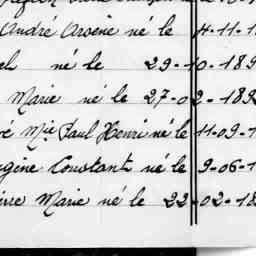 André Arsène né le 4-11-1
né le 29-10-189
Marie né le 27-02-189
Mie Paul Henri né le 11-09-1
Constant né le 9-06-1
Marie né le 22-02-18